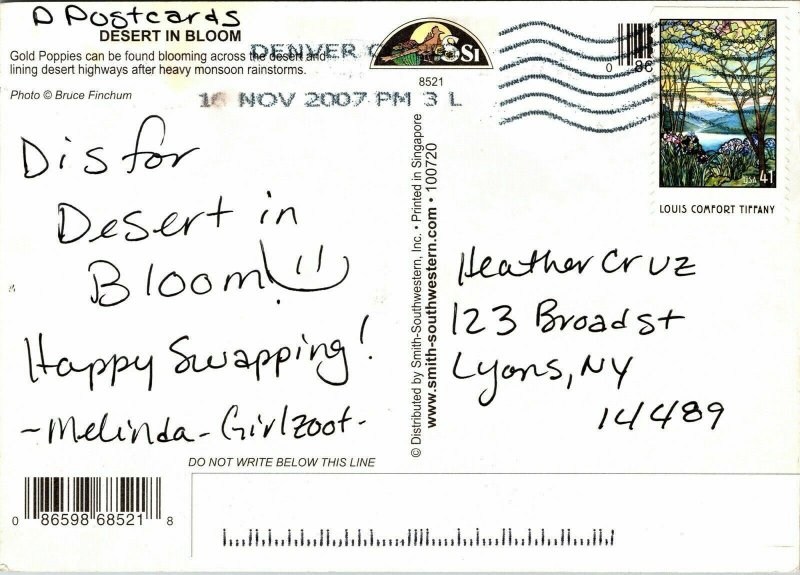 D Postcards
DESERT IN BLOOM
Gold Poppies can be found blooming across the desert and
lining desert highways after heavy monsoon rainstorms.
Photo © Bruce Finchum
DENVER
16 NOV 2007 PM 3 L
SSI
8521
0 86
USA 41
LOUIS COMFORT TIFFANY
D is for
Desert in
Bloom!
Happy Swapping!
-Melinda- Girlzoot-
DO NOT WRITE BELOW THIS LINE
0 86598 68521 8
© Distributed by Smith-Southwestern, Inc. • Printed in Singapore
www.smith-southwestern.com • 100720
Heather Cruz
123 Broad st
Lyons, NY
14489